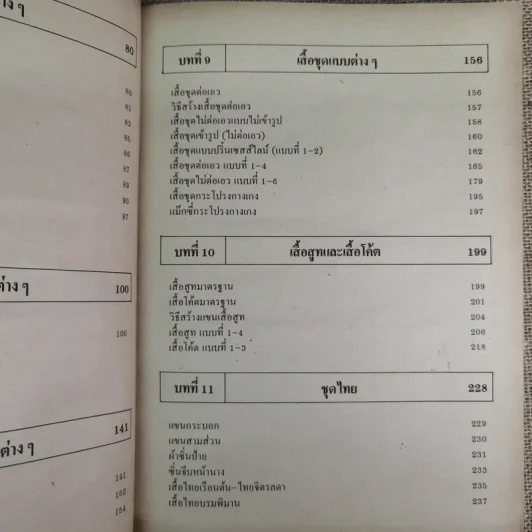 ่าง ๆ
80
80
81
83
85
86
87
89
90
97
ต่าง ๆ 100
100
141
ต่าง ๆ
141
152
154
บทที่ 9 เสื้อชุดแบบต่าง ๆ 156
เสื้อชุดต่อเอว 156
วิธีสร้างเสื้อชุดต่อเอว 157
เสื้อชุดไม่ต่อเอวแบบไม่เข้ารูป 158
เสื้อชุดเข้ารูป (ไม่ต่อเอว) 160
เสื้อชุดแบบปริ๊นเซสส์ไลน์ (แบบที่ 1-2) 162
เสื้อชุดต่อเอว แบบที่ 1-4 165
เสื้อชุดไม่ต่อเอว แบบที่ 1-6 179
เสื้อชุดกระโปรงกางเกง 195
แม็กซี่กระโปรงกางเกง 197
บทที่ 10 เสื้อสูทและเสื้อโค้ต 199
เสื้อสูทมาตรฐาน 199
เสื้อโค้ตมาตรฐาน 201
วิธีสร้างแขนเสื้อสูท 204
เสื้อสูท แบบที่ 1-4 206
เสื้อโค้ต แบบที่ 1-3 218
บทที่ 11 ชุดไทย 228
แขนกระบอก 229
แขนสามส่วน 230
ผ้าซิ่นป้าย 231
ซิ่นจีบหน้านาง 233
เสื้อไทยเรือนต้น-ไทยจิตรลดา 235
เสื้อไทยบรมพิมาน 237